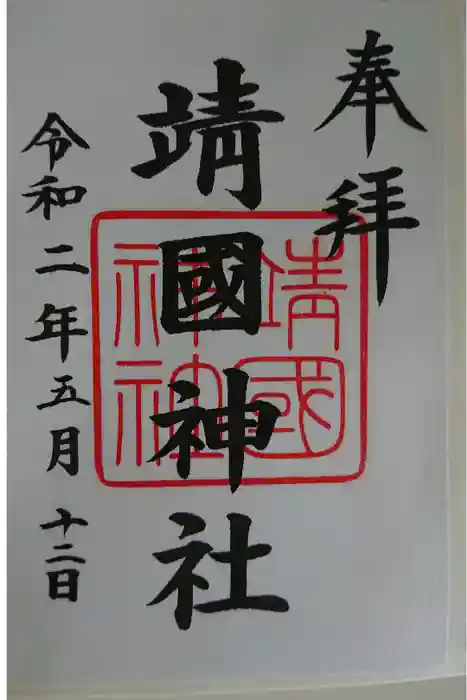 奉拝
靖國神社
靖国
神社
令和二年五月十二日